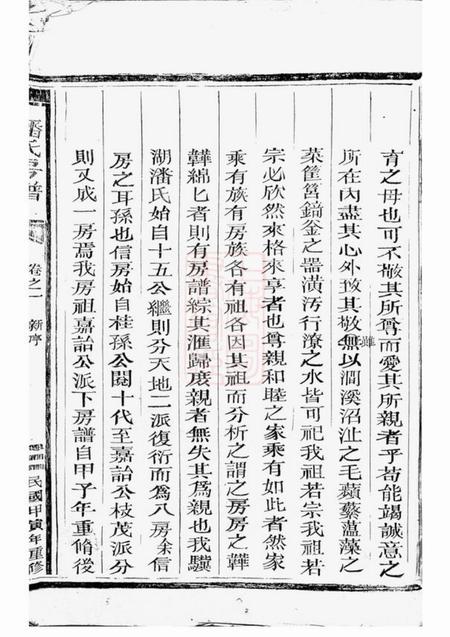 育之母也可不敬其所尊而愛其所親者乎苟能竭誠意之
所在內盡其心外致其敬無以澗溪沼沚之毛蘋蘩薀藻之
雖
菜筐筥錡釜之器潢汚行潦之水皆可祀我祖若宗我祖若
宗必欣然來格來享者也尊親和睦之家乘有如此者然家
乘有族有房族各有祖各因其祖而分析之謂之房房之
綿匕者則有房譜綜其滙歸庻親者無失其為親也我驥
湖潘氏始自十五公繼則分天地二派復衍而為八房余信
房之耳孫也信房始自桂孫公閱十代至嘉詒公枝茂派分
則又成一房焉我房祖嘉詒公派下房譜自甲子年重脩後
潘氏房譜
卷之一
新序
民國甲寅年重修